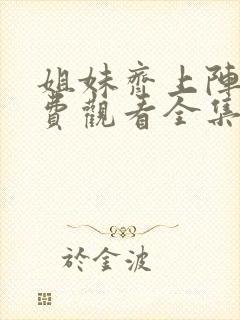 姐妹齊上陣
費觀看全集
於金波